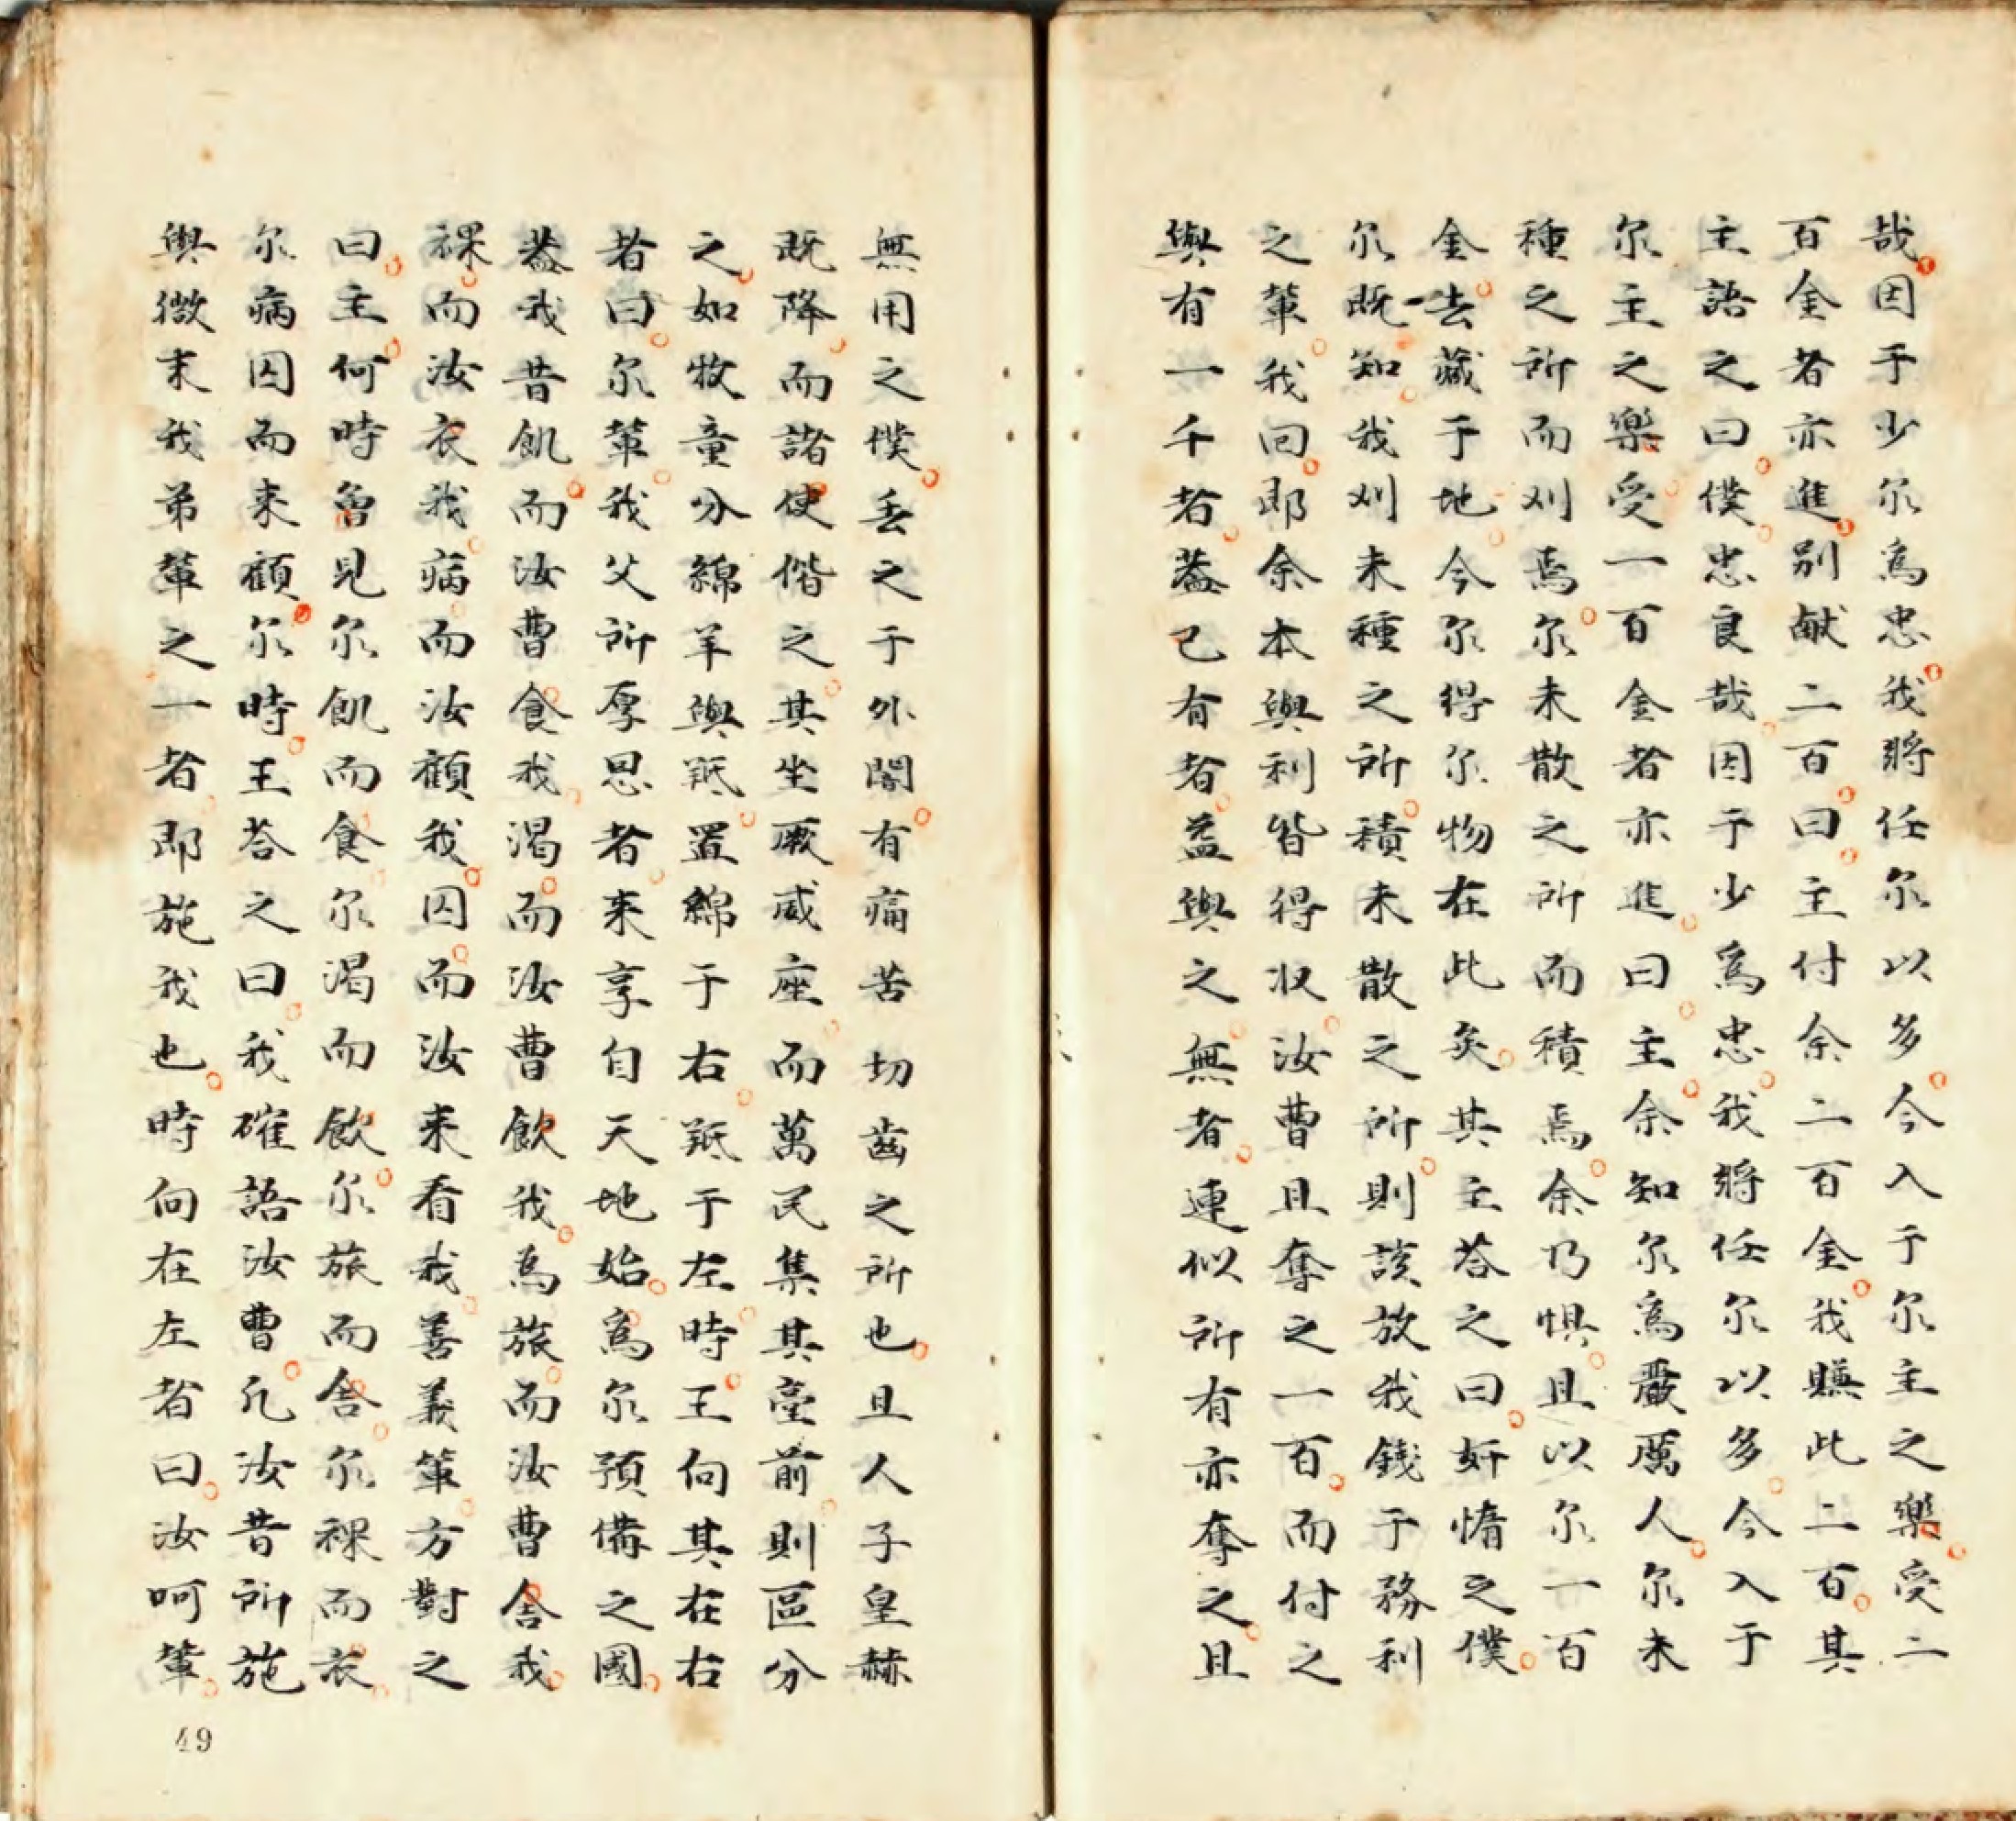 哉因于少尔為忠我將任尔以多今入于尔主之樂受二
百金者亦進別献二百曰主付余二百金我賺此二百其
主語之曰僕忠良哉因于少為忠我將任尔以多今入于
尔主之樂受一百金者亦進曰主余知尔為嚴厲人尔未
種之所而刈焉尔未散之所而積焉余乃惧且以尔一百
金去藏于地今尔得尔物在此矣其主荅之曰奸惰之僕
尔既知我刈未種之所積未散之所則該放我錢于務利
之輩我回即余本與利皆得収汝曹且奪之一百而付之
與有一千者葢已有者益與之無者連似所有亦奪之且
無用之僕丢之于外闇有痛苦切齒之所也且人子皇赫
既降而諸使偕之其坐厥威座而萬民集其臺前則區分
之如牧童分綿羊與羝置綿于右羝于左時王向其在右
者曰尔輩我父所厚恩者来享自天地始為尔預備之國
葢我昔飢而汝曹食我渴而汝曹飲我為旅而汝曹舍我
裸而汝衣我病而汝顧我囚而汝来看我善義輩方對之
曰主何時曾見尔飢而食尔渴而飲尔旅而舍尔裸而衣
尔病囚而来顧尔時王荅之曰我確語汝曹凡汝昔所施
與微末我弟輩之一者即施我也時向在左者曰汝呵輩
49